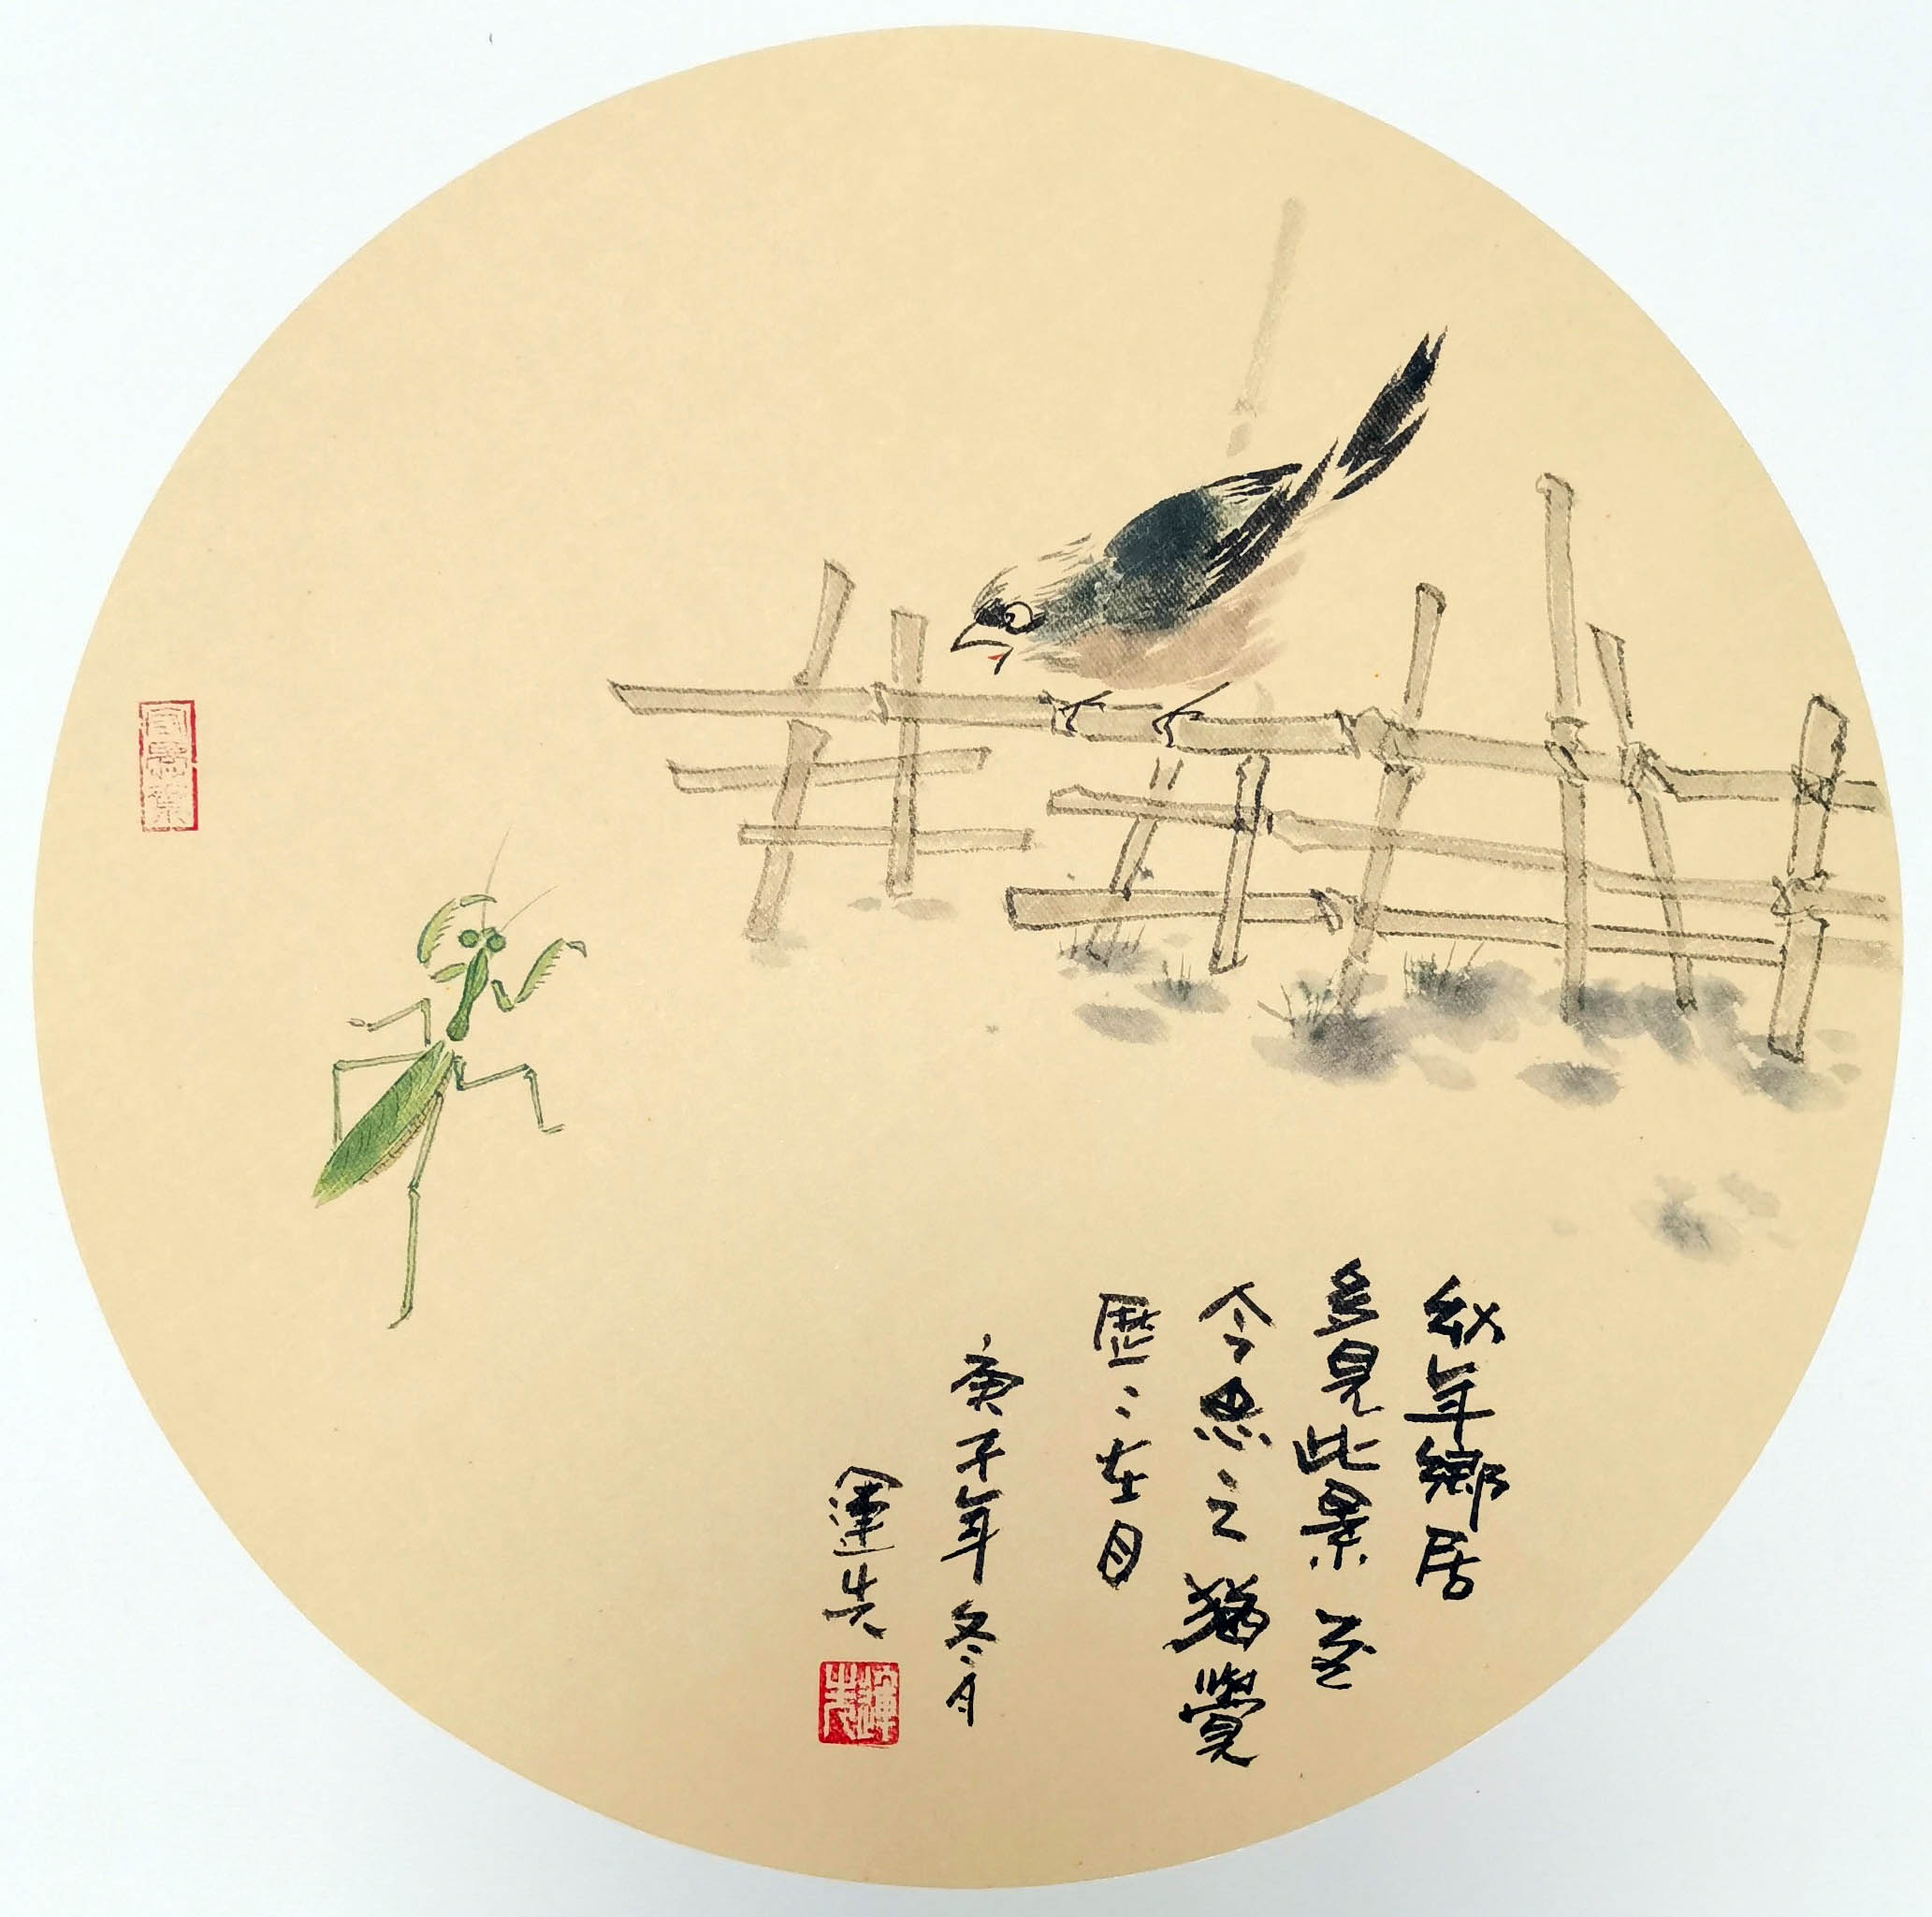 幼年鄉居
多見此景至
今思之猶覺
歷〻在目
庚子年冬月
運先
運先